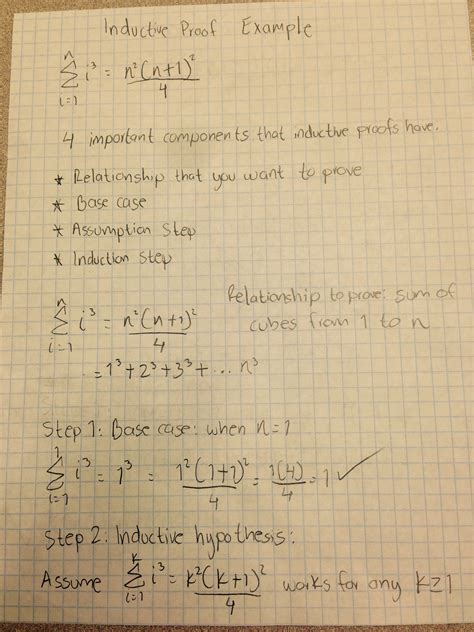 Inductive Proof Example
n
Σ i³ = n²(n+1)²
i=1 4
4 important components that inductive proofs have.
* Relationship that you want to prove
* Base case
* Assumption Step
* Induction Step
Relationship to prove: sum of
cubes from 1 to n
n
Σ i³ = n²(n+1)²
i=1 4
= 1³ + 2³ + 3³ + ... n³
Step 1: Base case: when n=1
1
Σ i³ = 1³ = 1²(1+1)² = 1(4) = 1 ✓
i=1 4 4
Step 2: Inductive hypothesis:
k
Assume Σ i³ = k²(k+1)² works for any k≥1
i=1 4